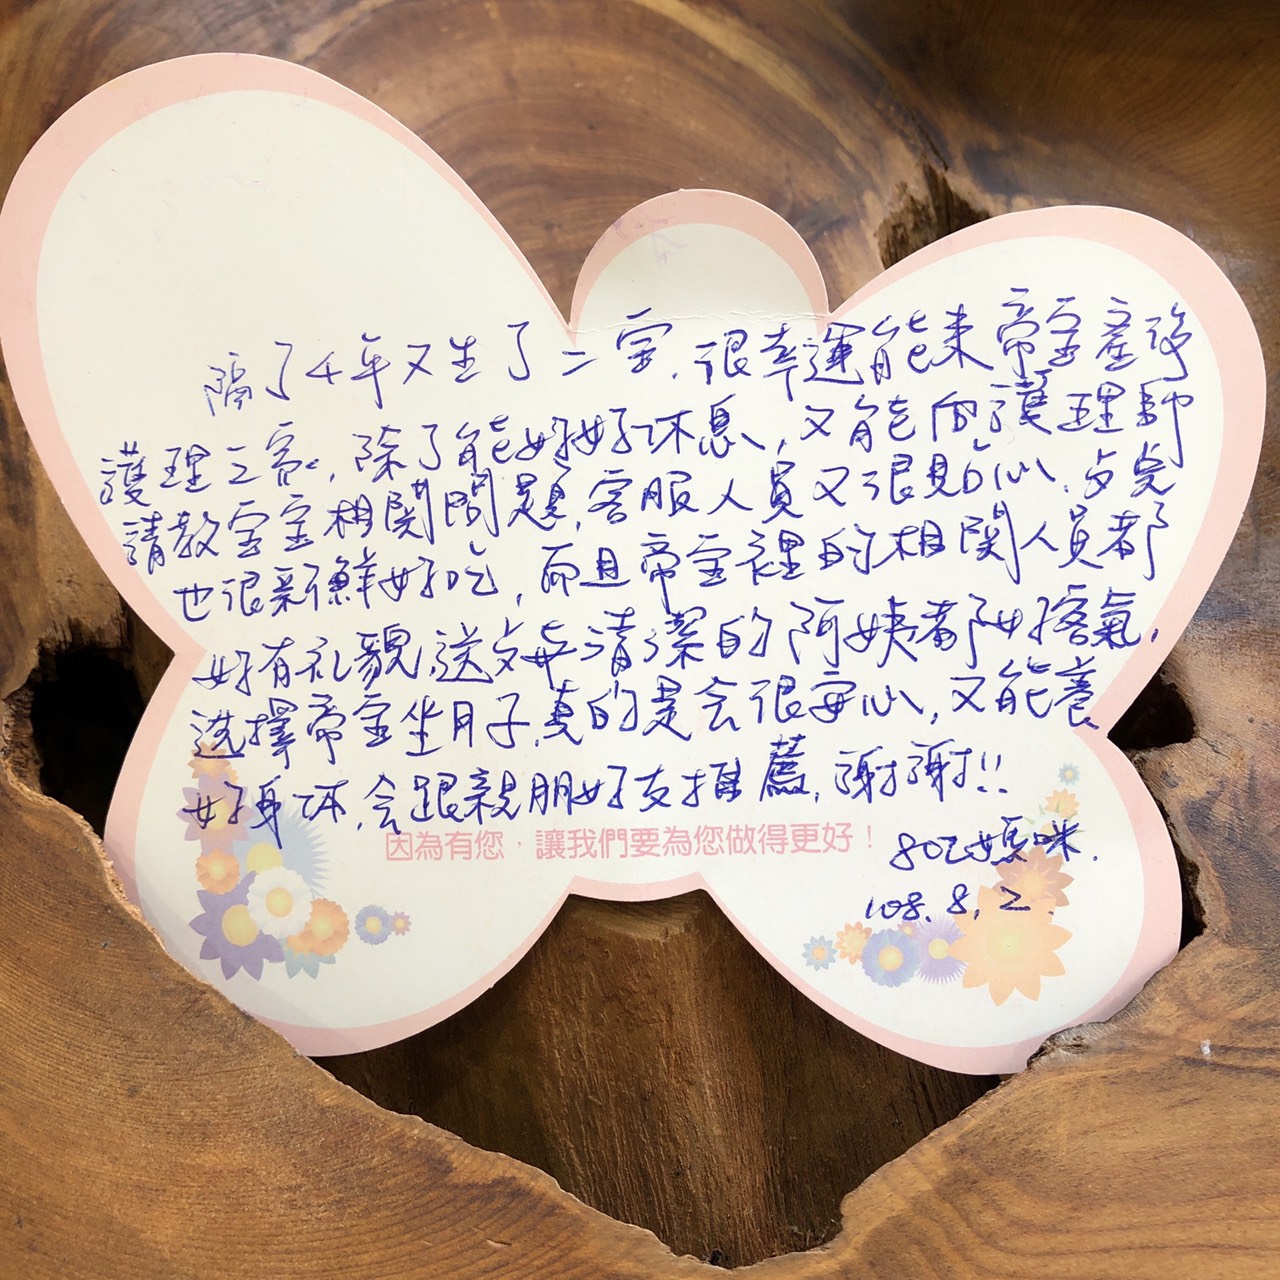 隔了4年又生了二宝,很幸運能來帝宝產後
護理之家,除了能好好休息,又能向護理師
請教宝宝相関問題,客服人員又很貼心,
也很新鮮好吃,而且帝宝裡的相関人員都
好有礼貌,送 清潔的阿姨都 客氣,
選擇帝宝坐月子,真的是会很安心,又能養
好身体,会跟親朋好友推薦,謝謝!!
因為有您,讓我們要為您做得更好!
802媽咪.
108.8.2